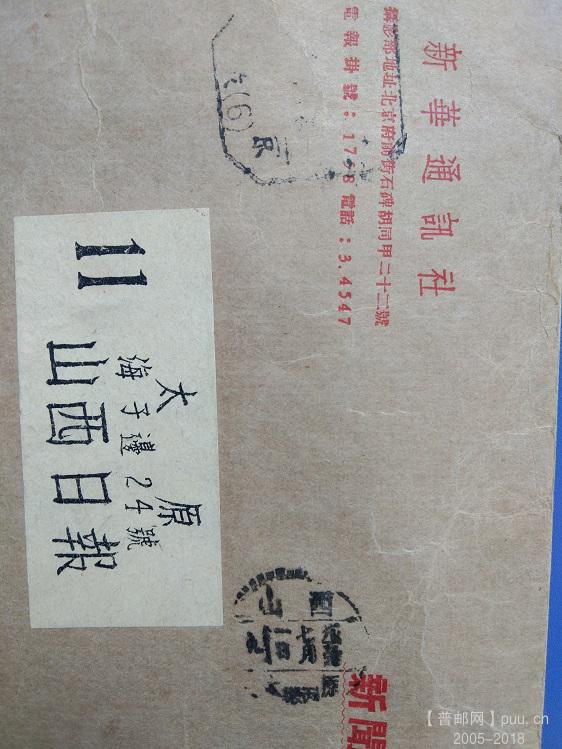 新華通訊社
攝影部地址北京府前街石碑胡同甲二十二號
電報掛號： 電話：3.4547
京
(6)
太原
海子邊24號
11 山西日報
山西
新聞
【普邮网】puu.cn
2005-2018